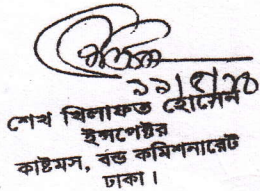 শেখ খিলাফত হোসেন
ইন্সপেক্টর
কাষ্টমস, বন্ড কমিশনারেট
ঢাকা।